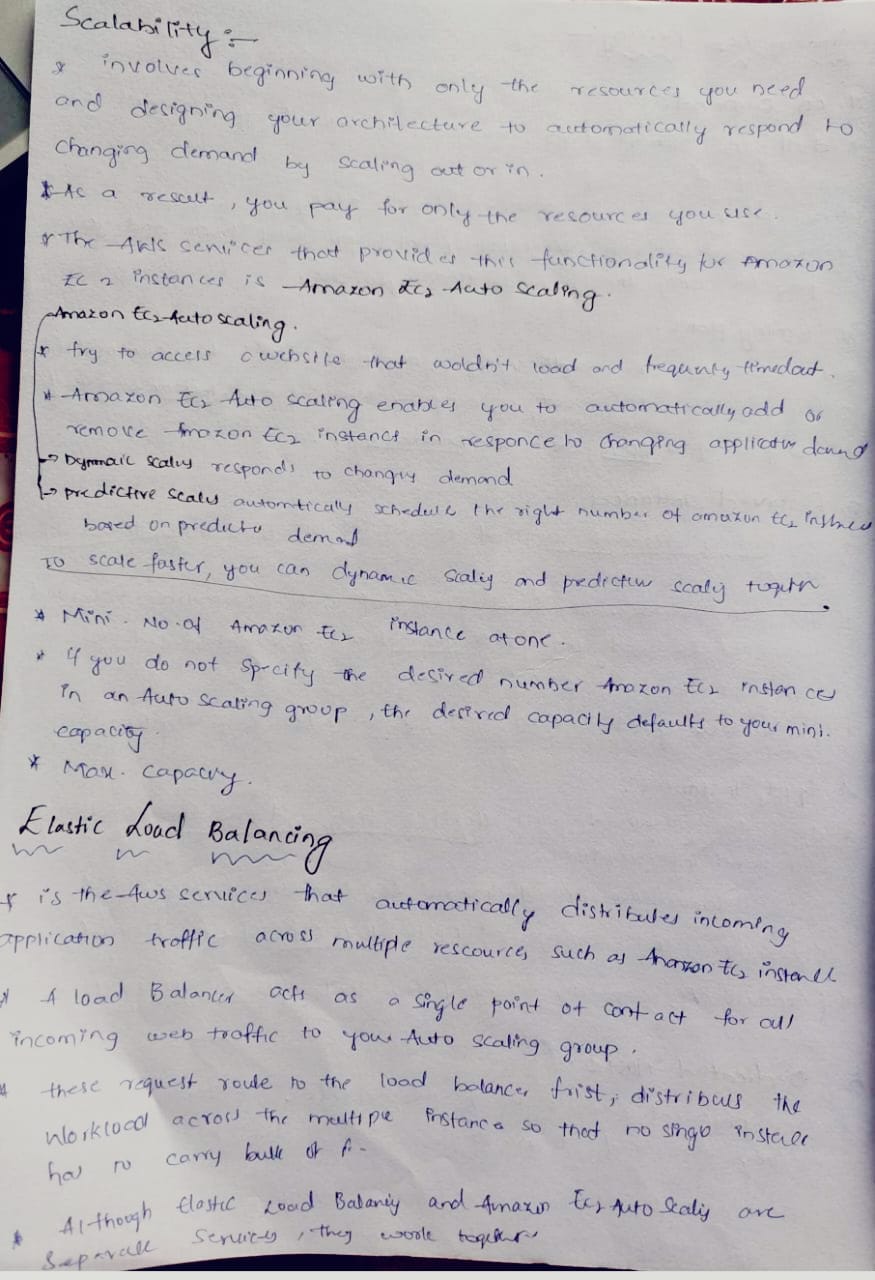 Scalability :-
* involves beginning with only the resources you need
and designing your architecture to automatically respond to
Changing demand by scaling out or in.
* As a result, you pay for only the resources you use.
* The AWS services that provides this functionality for Amazon
EC2 instances is Amazon EC2 Auto Scaling.
Amazon EC2 Auto scaling.
* try to access a website that woldn't load and frequntly timedout.
* Amazon EC2 Auto scaling enables you to automatically add or
remove Amozon EC2 instance in responce to changing application
→ scaling responds to changing demand
→ predictive automtically schedule the right number of amazon EC2
based on demand
To scale faster, you can dynamic scalig and scalig
* Mini. No. of Amazon EC2 instance atone.
* if you do not specify the desired number Amozon EC2 instances
in an Auto scaling group, the desired capacity defaults to your mini.
capacity.
* Max. capacity.
Elastic Load Balancing
* is the Aws services that automatically distributes incoming
application traffic across multiple rescources such as Amazon EC2
* A load Balancer acts as a single point of contact for all
incoming web traffic to your Auto scaling group.
* these request route to the load balancer frist, the
Workload across the multiple instance so that no instance
has to carry bulk of
* Although Elastic Load and Amazon EC2 Auto Scalig are
Separate Services, they work